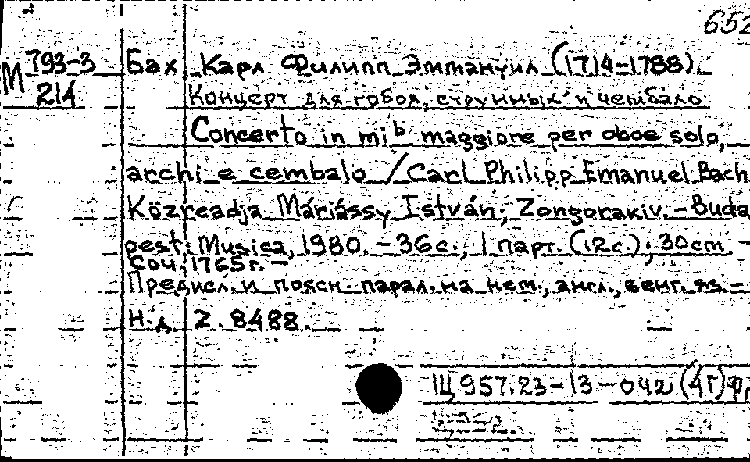 652
М 793-3
214
Бах, Карл Филипп Эммануил (1714-1788).
Концерт для гобоя, струнных и чембало
Concerto in mi b maggiore per oboe solo,
archi e cembalo / Carl Philipp Emanuel Bach
Közreadja Máriássy István; Zongorakiv. - Buda
pest: Musica, 1980. - 36 с., 1 парт. (12 с.); 30cm -
Соч. 1765 г. -
Предисл. и поясн. парал. на нем., англ., венг. яз. -
Н. д. Z. 8488.
Щ957.23-13-042 (4Г)